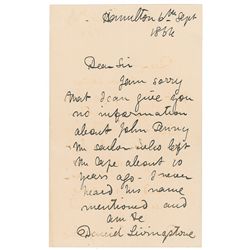 Hamilton 6th Sept
1864
Dear Sir
I am sorry
that I can give you
no information
about John
the sailor who left
the Cape about 10
years ago - I never
heard his name
mentioned and
am &c
David Livingstone